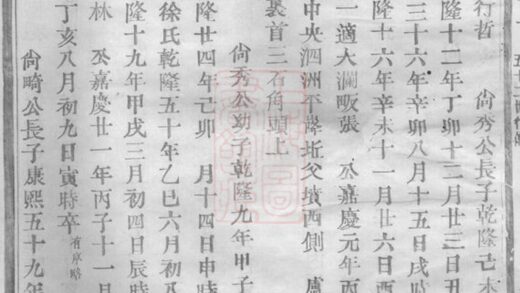 行哲　尙秀公長子乾隆己未
隆十二年丁卯十二月廿三日丑
三十六年辛卯八月十五日戌時
隆十六年辛未十一月廿六日酉
一適大瀾畈張　嘉慶元年丙
中央泗洲平坵父墳西側　盧
首三石角頭上
尙秀公幼子乾隆九年甲子
隆廿四年己卯　月十四日申時
徐氏乾隆五十年乙巳六月初
隆十九年甲戌三月初四日辰時
林　嘉慶廿一年丙子十一月
丁亥八月初九日寅時卒有序略
尙畸公長子康熙五十九年